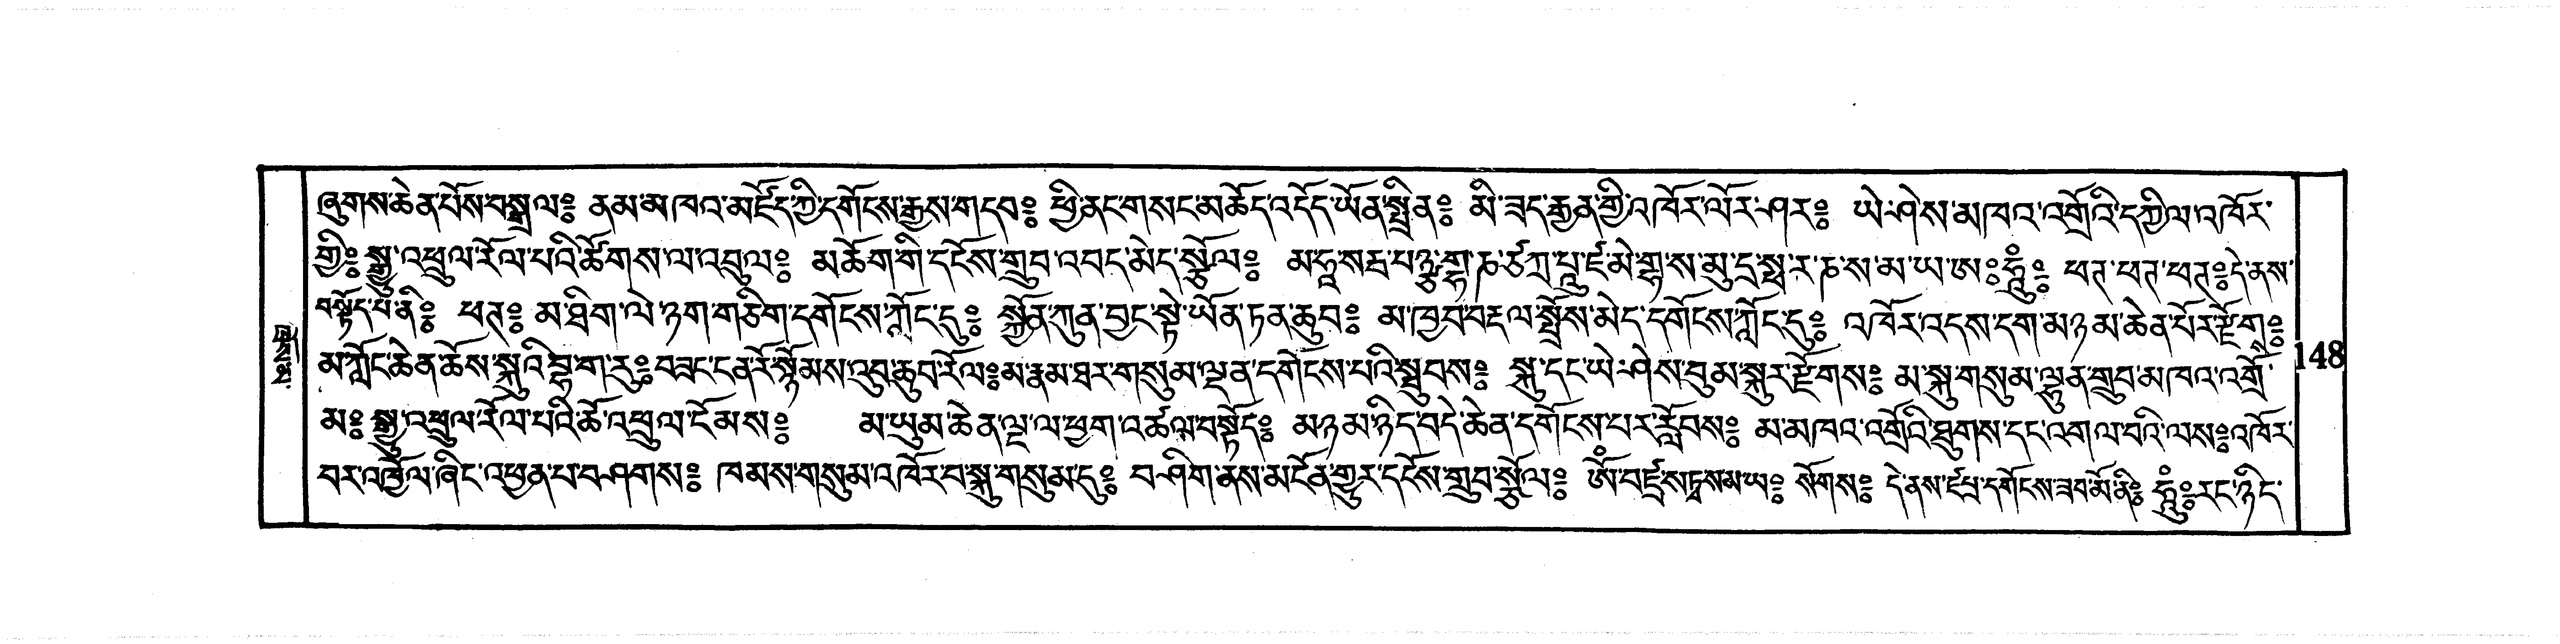 ཞུགས་ཆེན་པོས་བསྒྲལ༔ ནམ་མཁའ་མཛོད་ཀྱི་དགོངས་རྒྱས་གདབ༔ ཕྱི་ནང་གསང་མཆོད་འདོད་ཡོན་སྤྲིན༔ མི་ཟད་རྒྱན་གྱི་འཁོར་ལོར་ཤར༔ ཡེ་ཤེས་མཁའ་འགྲོའི་དཀྱིལ་འཁོར་
གྱི༔ སྒྱུ་འཕྲུལ་རོལ་པའི་ཚོགས་ལ་འབུལ༔ མཆོག་གི་དངོས་གྲུབ་འབད་མེད་སྩོལ༔ མཧཱ་སརྦ་པཉྩ་ ས་མུ་དྲ་སྥ་ར་ཎ་ས་མ་ཡ་ཨ༔ ཧཱུྃ༔ ཕཊ་ཕཊ་ཕཊ༔ དེ་ནས་
བསྟོད་པ་ནི༔ ཕཊ༔ མ་ཐིག་ལེ་ཉག་གཅིག་དགོངས་ཀློང་དུ༔ སྐྱོན་ཀུན་བྱང་སྟེ་ཡོན་ཏན་ཆུབ༔ མ་ཁྱབ་བརྡལ་སྤྲོས་མེད་དགོངས་ཀློང་དུ༔ འཁོར་འདས་དག་མཉམ་ཆེན་པོར་རྫོགས༔
མ་ཀློང་ཆེན་ཆོས་སྐུའི་བྷ་ག་རུ༔ བཟང་ངན་རོ་སྙོམས་འུབ་ཆུབ་རོལ༔ མ་རྣམ་ཐར་གསུམ་ལྡན་དགོངས་པའི་སྦུབས༔ སྐུ་དང་ཡེ་ཤེས་བུམ་སྐུར་རྫོགས༔ མ་སྐུ་གསུམ་ལྷུན་གྲུབ་མཁའ་འགྲོ་
མ༔ སྒྱུ་འཕྲུལ་རོལ་པའི་ཆོ་འཕྲུལ་ངོམས༔ མ་ཡུམ་ཆེན་ལྔ་ལ་ཕྱག་འཚལ་བསྟོད༔ མཉམ་ཉིད་བདེ་ཆེན་དགོངས་པར་རློབས༔ མ་མཁའ་འགྲོའི་ཐུགས་དང་འགལ་བའི་ལས༔ འཁོར་
བར་འཁྱོལ་ཞིང་འཕྱན་པ་བཤགས༔ ཁམས་གསུམ་འཁོར་བ་སྐུ་གསུམ་དུ༔ བཤིག་ནས་མངོན་གྱུར་དངོས་གྲུབ་སྩོལ༔ ཨོཾ་བཛྲ་སཏྭ་སམ་ཡ༔ སོགས༔ དེ་ནས་ཛཔ་དགོངས་ཟབ་མོ་ནི༔ ཧཱུྃ༔ རང་ཉིད་
148